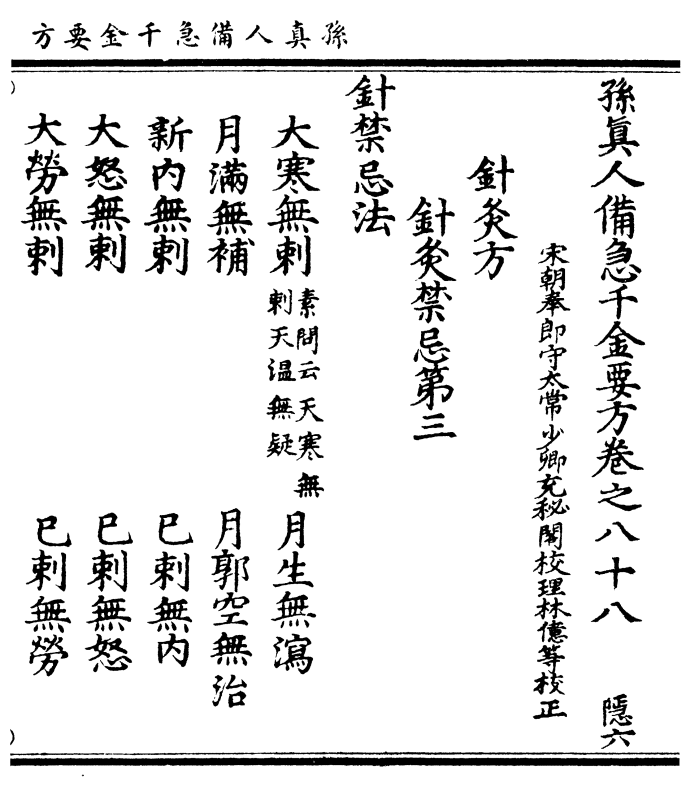 孫真人備急千金要方
孫眞人備急千金要方卷之八十八　隱六
宋朝奉郎守太常少卿充秘閣校理林億等校正
針灸方
針灸禁忌第三
針禁忌法
大寒無刺 素問云天寒無刺天温無疑　月生無瀉
月滿無補　月郭空無治
新内無刺　已刺無内
大怒無刺　已刺無怒
大勞無刺　已刺無勞